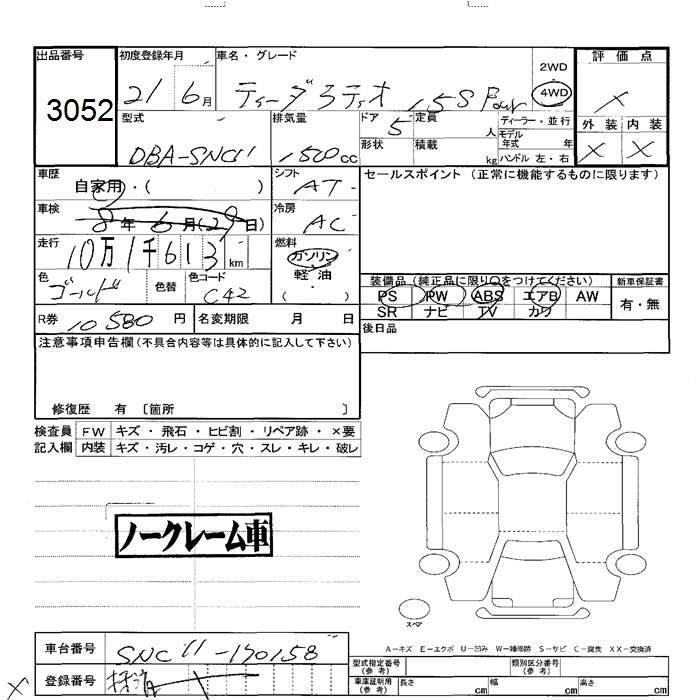 出品番号 初度登録年月 車名・グレード 評価点
3052 21 6月 ティーダラティオ 15S Four 2WD 4WD ×
型式 排気量 ドア 定員 ディーラー・並行 外装 内装
DBA-SNC11 1500cc 5 人 モデル年式 年 × ×
形状 積載 kg ハンドル 左・右
車歴 シフト セールスポイント (正常に機能するものに限ります)
自家用・( ) AT
車検 冷房
8年 6月(29日) AC
走行 燃料
10万1千613km ガソリン
軽油
色 色替 色コード ( )
ゴールド C42
装備品 (純正品に限り○をつけてください) 新車保証書
PS PW ABS エアB AW 有・無
SR ナビ TV カワ
R券 10580円 名変期限 月 日 後日品
注意事項申告欄(不具合内容等は具体的に記入して下さい)
修復歴 有 〔箇所 〕
検査員 FW キズ・飛石・ヒビ割・リペア跡・×要
記入欄 内装 キズ・汚レ・コゲ・穴・スレ・キレ・破レ
ノークレーム車
スペア
A-キズ E-エクボ U-凹み W-補修跡 S-サビ C-腐食 XX-交換済
車台番号 SNC11-170158
登録番号 抹消
型式指定番号(参考) 類別区分番号(参考)
車庫証明用(参考) 長さ cm 幅 cm 高さ cm
×